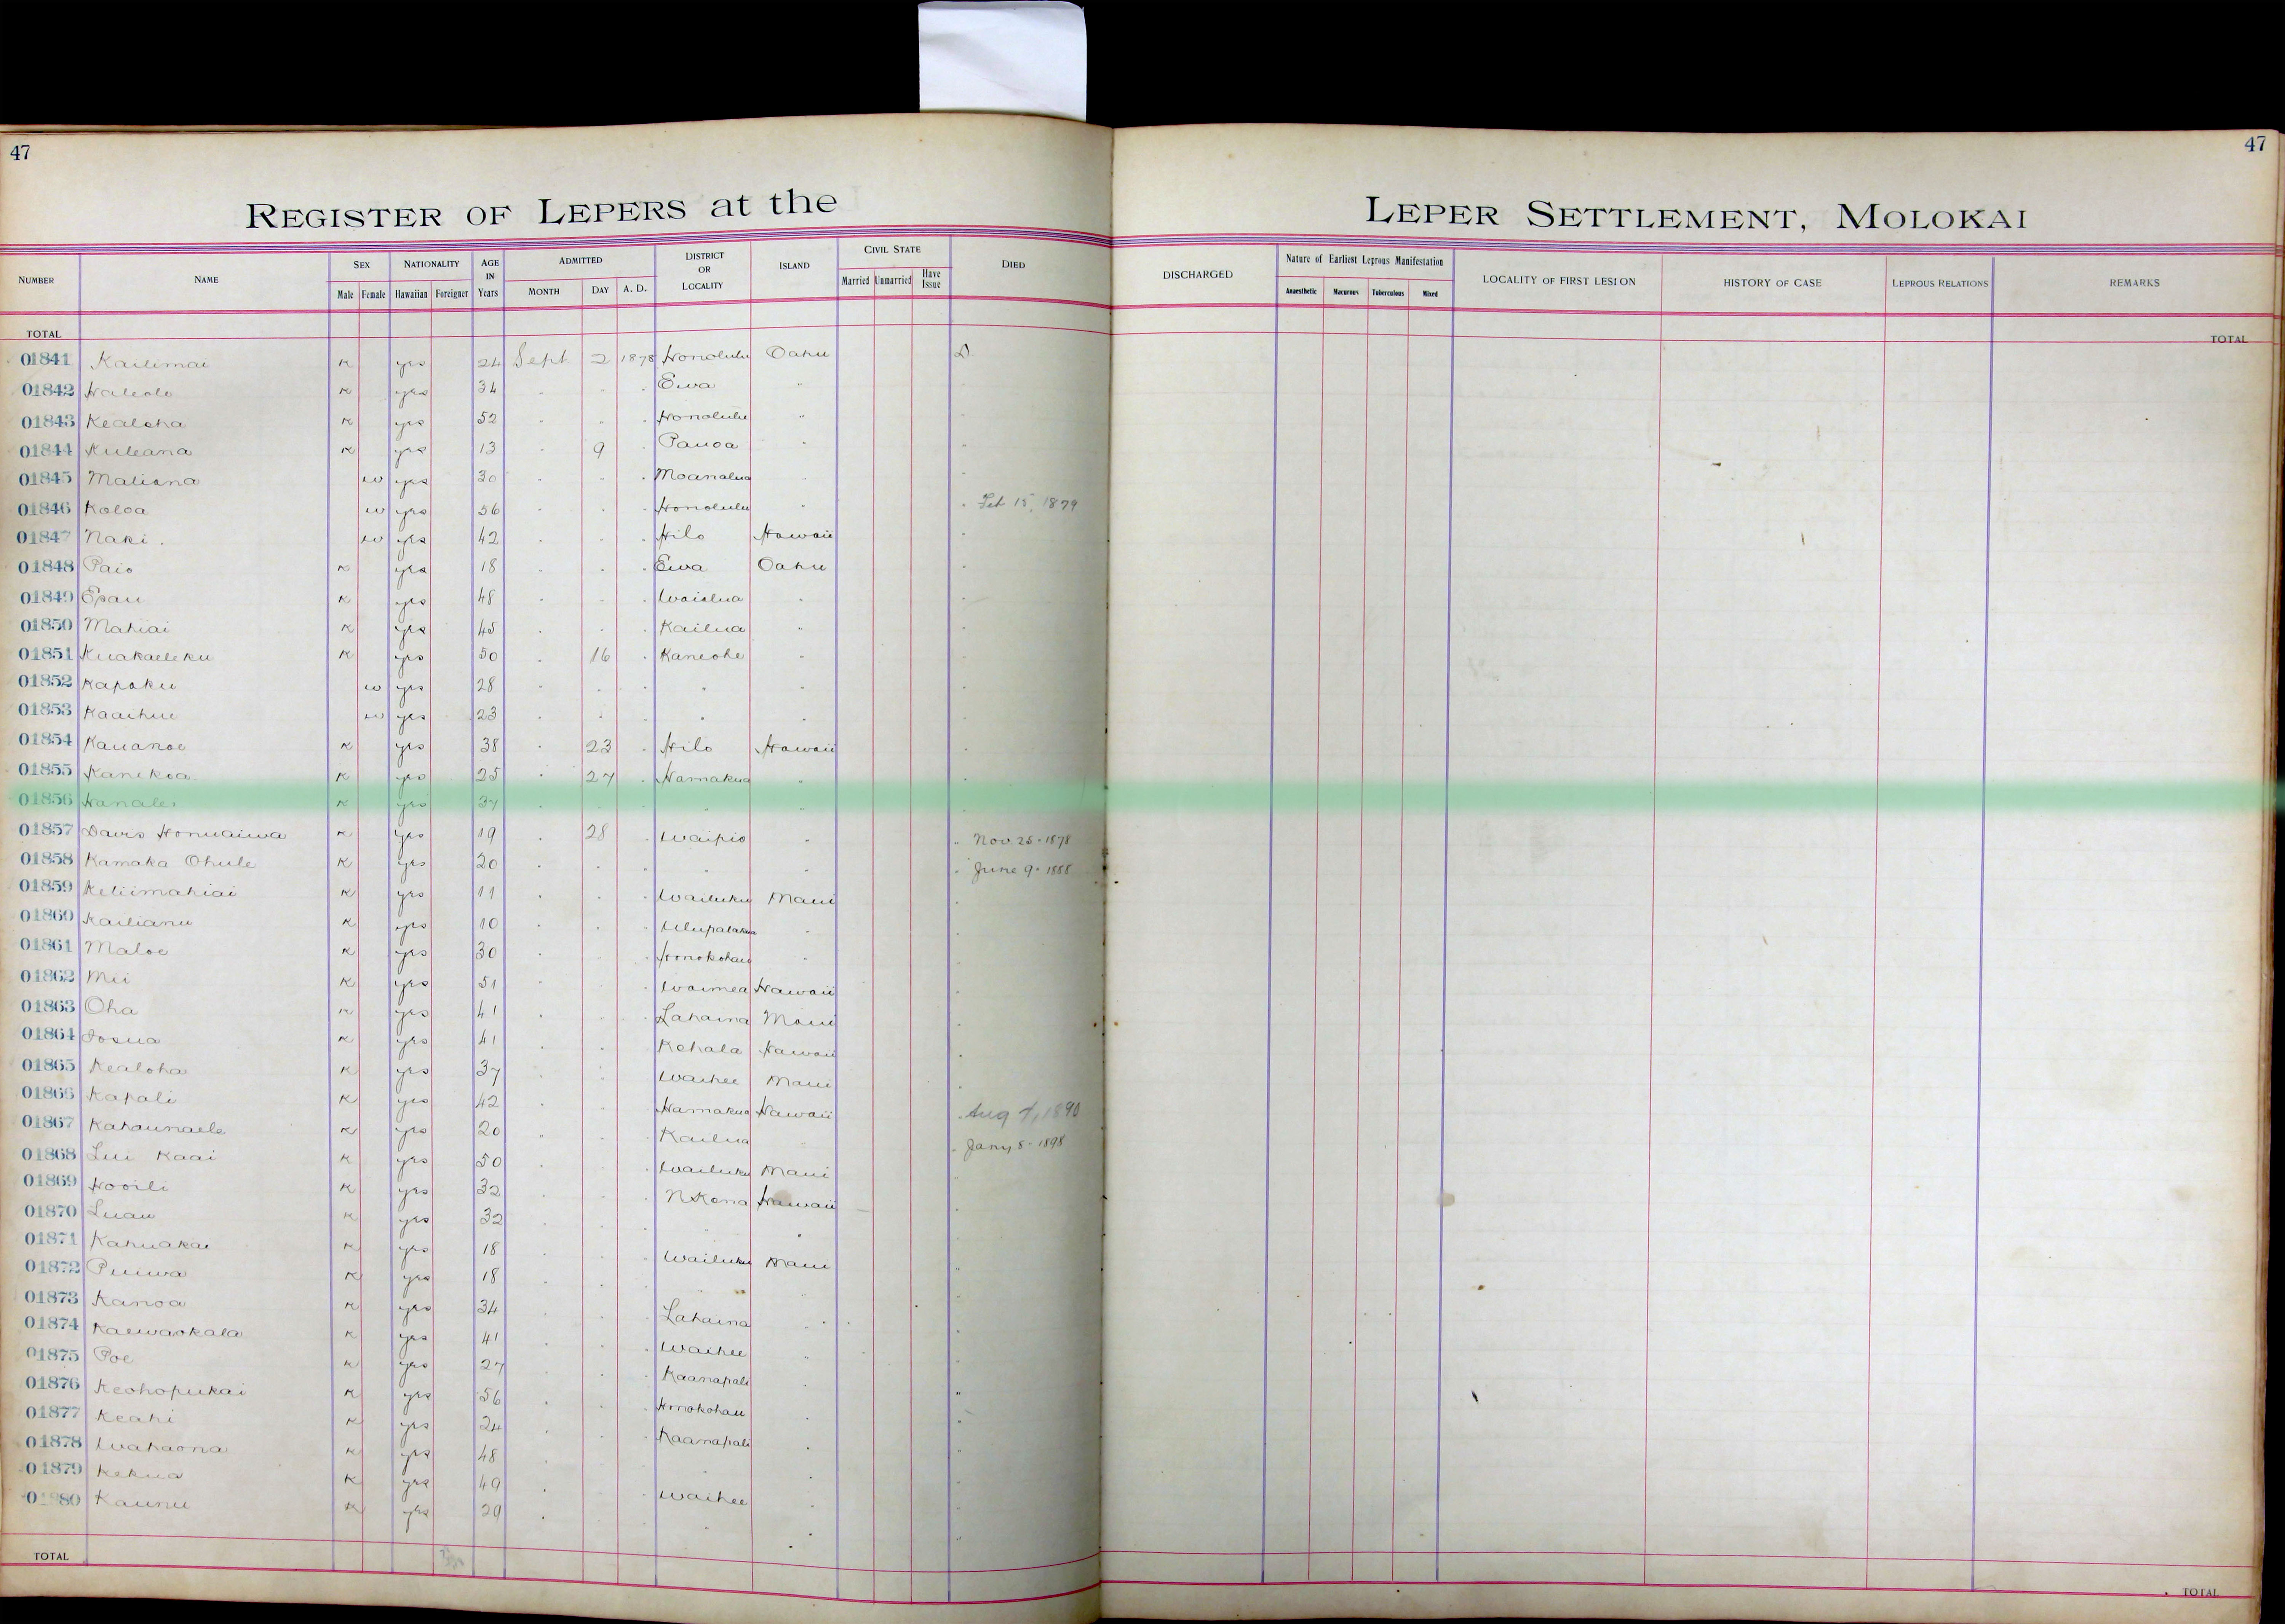 47
47
REGISTER OF LEPERS at the LEPER SETTLEMENT, MOLOKAI
NUMBER NAME SEX Male Female NATIONALITY Hawaiian Foreigner AGE IN Years ADMITTED MONTH DAY A. D. DISTRICT OR LOCALITY ISLAND CIVIL STATE Married Unmarried Have Issue DIED DISCHARGED Nature of Earliest Leprous Manifestation Anaesthetic Macurous Tuberculous Mixed LOCALITY OF FIRST LESION HISTORY OF CASE LEPROUS RELATIONS REMARKS
TOTAL TOTAL
01841 Kailimai K yes 24 Sept 2 1878 Honolulu Oahu D
01842 Haleolo K yes 34 " " " Ewa "
01843 Kealoha K yes 52 " " " Honolulu "
01844 Kuleana K yes 13 " 9 " Pauoa "
01845 Maliana w yes 30 " " " Moanalua "
01846 Koloa w yes 56 " " " Honolulu " " Feb 15, 1879
01847 Naki w yes 42 " " " Hilo Hawaii "
01848 Paio K yes 18 " " " Ewa Oahu "
01849 Epau K yes 48 " " " Waialua " "
01850 Mahiai K yes 45 " " " Kailua " "
01851 Kuakaeleku K yes 50 " 16 " Kaneohe " "
01852 Kapoku w yes 28 " " " " " "
01853 Kaaihue w yes 23 " " " " " "
01854 Kauanoe K yes 38 " 23 " Hilo Hawaii "
01855 Kanekoa K yes 25 " 27 " Hamakua " "
01856 Hanalei K yes 37 " " " " " "
01857 Davis Honuaiwa K yes 19 " 28 " Waipio " " Nov 25 - 1878
01858 Kamaka Ohule K yes 20 " " " " " " June 9 - 1888
01859 Keliimahiai K yes 11 " " " Wailuku Maui "
01860 Kailianu K yes 10 " " " Ulupalakua " "
01861 Maloe K yes 30 " " " Honokohau " "
01862 Mii K yes 51 " " " Waimea Hawaii "
01863 Oha K yes 41 " " " Lahaina Maui "
01864 Iosua K yes 41 " " " Kohala Hawaii "
01865 Kealoha K yes 37 " " " Waihee Maui "
01866 Kapali K yes 42 " " " Hamakua Hawaii " Aug 7, 1890
01867 Kahaunaele K yes 20 " " " Kailua " " Jany 8 - 1898
01868 Lui Kaai K yes 50 " " " Wailuku Maui "
01869 Hooili K yes 32 " " " N Kona Hawaii "
01870 Luau K yes 32 " " " " " "
01871 Kahuakai K yes 18 " " " Wailuku Maui "
01872 Puiwa K yes 18 " " " " " "
01873 Kanoa K yes 34 " " " Lahaina " "
01874 Kaewaokala K yes 41 " " " Waihee " "
01875 Poe K yes 27 " " " Kaanapali " "
01876 Keohopukai K yes 56 " " " Honokohau " "
01877 Keahi K yes 24 " " " Kaanapali " "
01878 Wahaona K yes 48 " " " " " "
01879 Kekua K yes 49 " " " Waihee " "
0 880 Kaunu K yes 29 " " " " " "
TOTAL TOTAL